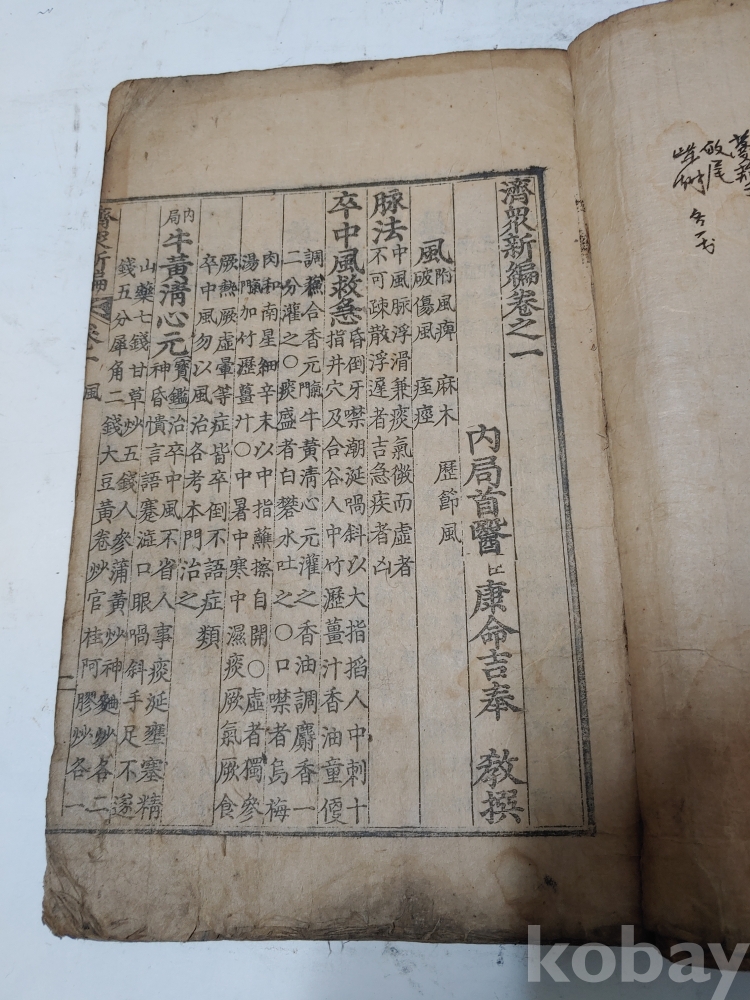 濟眾新編卷之一
內局首醫臣康命吉奉 敎撰
風附風痺 麻木 歷節風
破傷風 痓痙
脉法中風脉浮滑兼痰氣微而虛者
不可疎散浮遲者吉急疾者凶
卒中風救急昏倒牙噤潮涎喎斜以大指搯人中刺十
指井穴及合谷人中竹瀝薑汁香油童便
調蘇合香元 牛黃淸心元灌之香油調麝香一
二分灌之〇痰盛者白礬水吐之〇口噤者烏梅
肉和南星細辛末以中指蘸擦自開〇虛者獨參
湯 加竹瀝薑汁〇中暑中寒中濕痰厥氣厥食
厥熱厥虛暈等症皆卒倒不語症類
卒中風勿以風治各考本門治之
內局牛黃淸心元寶鑑治卒中風不省人事痰涎壅塞精
神昏憒言語蹇澁口眼喎斜手足不遂
山藥七錢甘草炒五錢人參蒲黃炒神麯炒各二
錢五分犀角二錢大豆黃卷炒官桂阿膠炒各一
濟眾新編 卷一 風
kobay